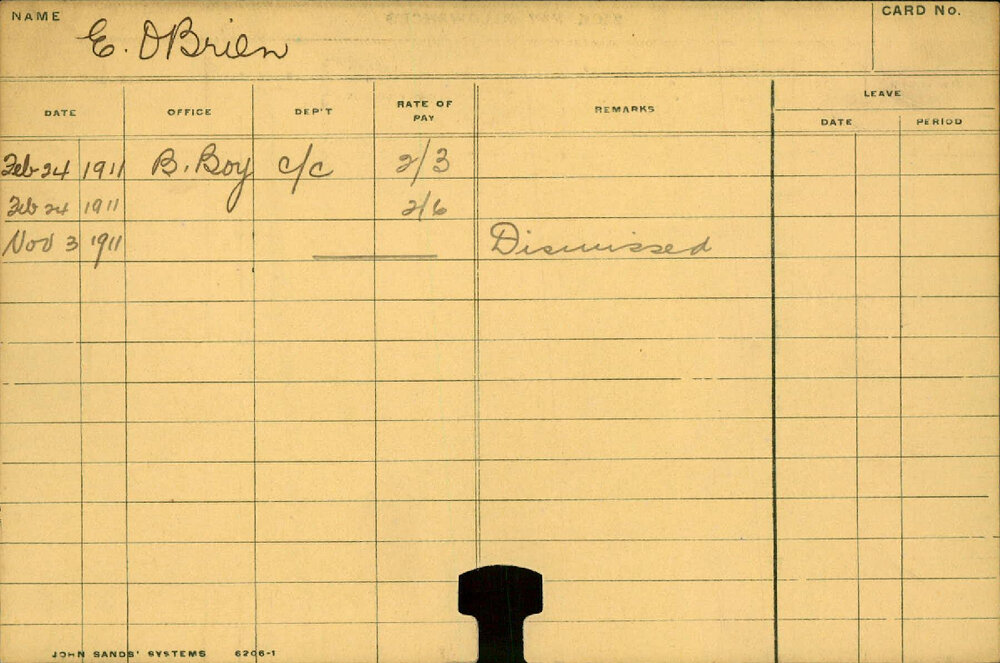 NAME E. OBrien CARD No.
DATE OFFICE DEP'T RATE OF PAY REMARKS LEAVE
DATE PERIOD
Feb 24 1911 B. Boy c/c 2/3
Feb 24 1911 2/6
Nov 3 1911 Dismissed
JOHN SANDS' SYSTEMS 6206-1